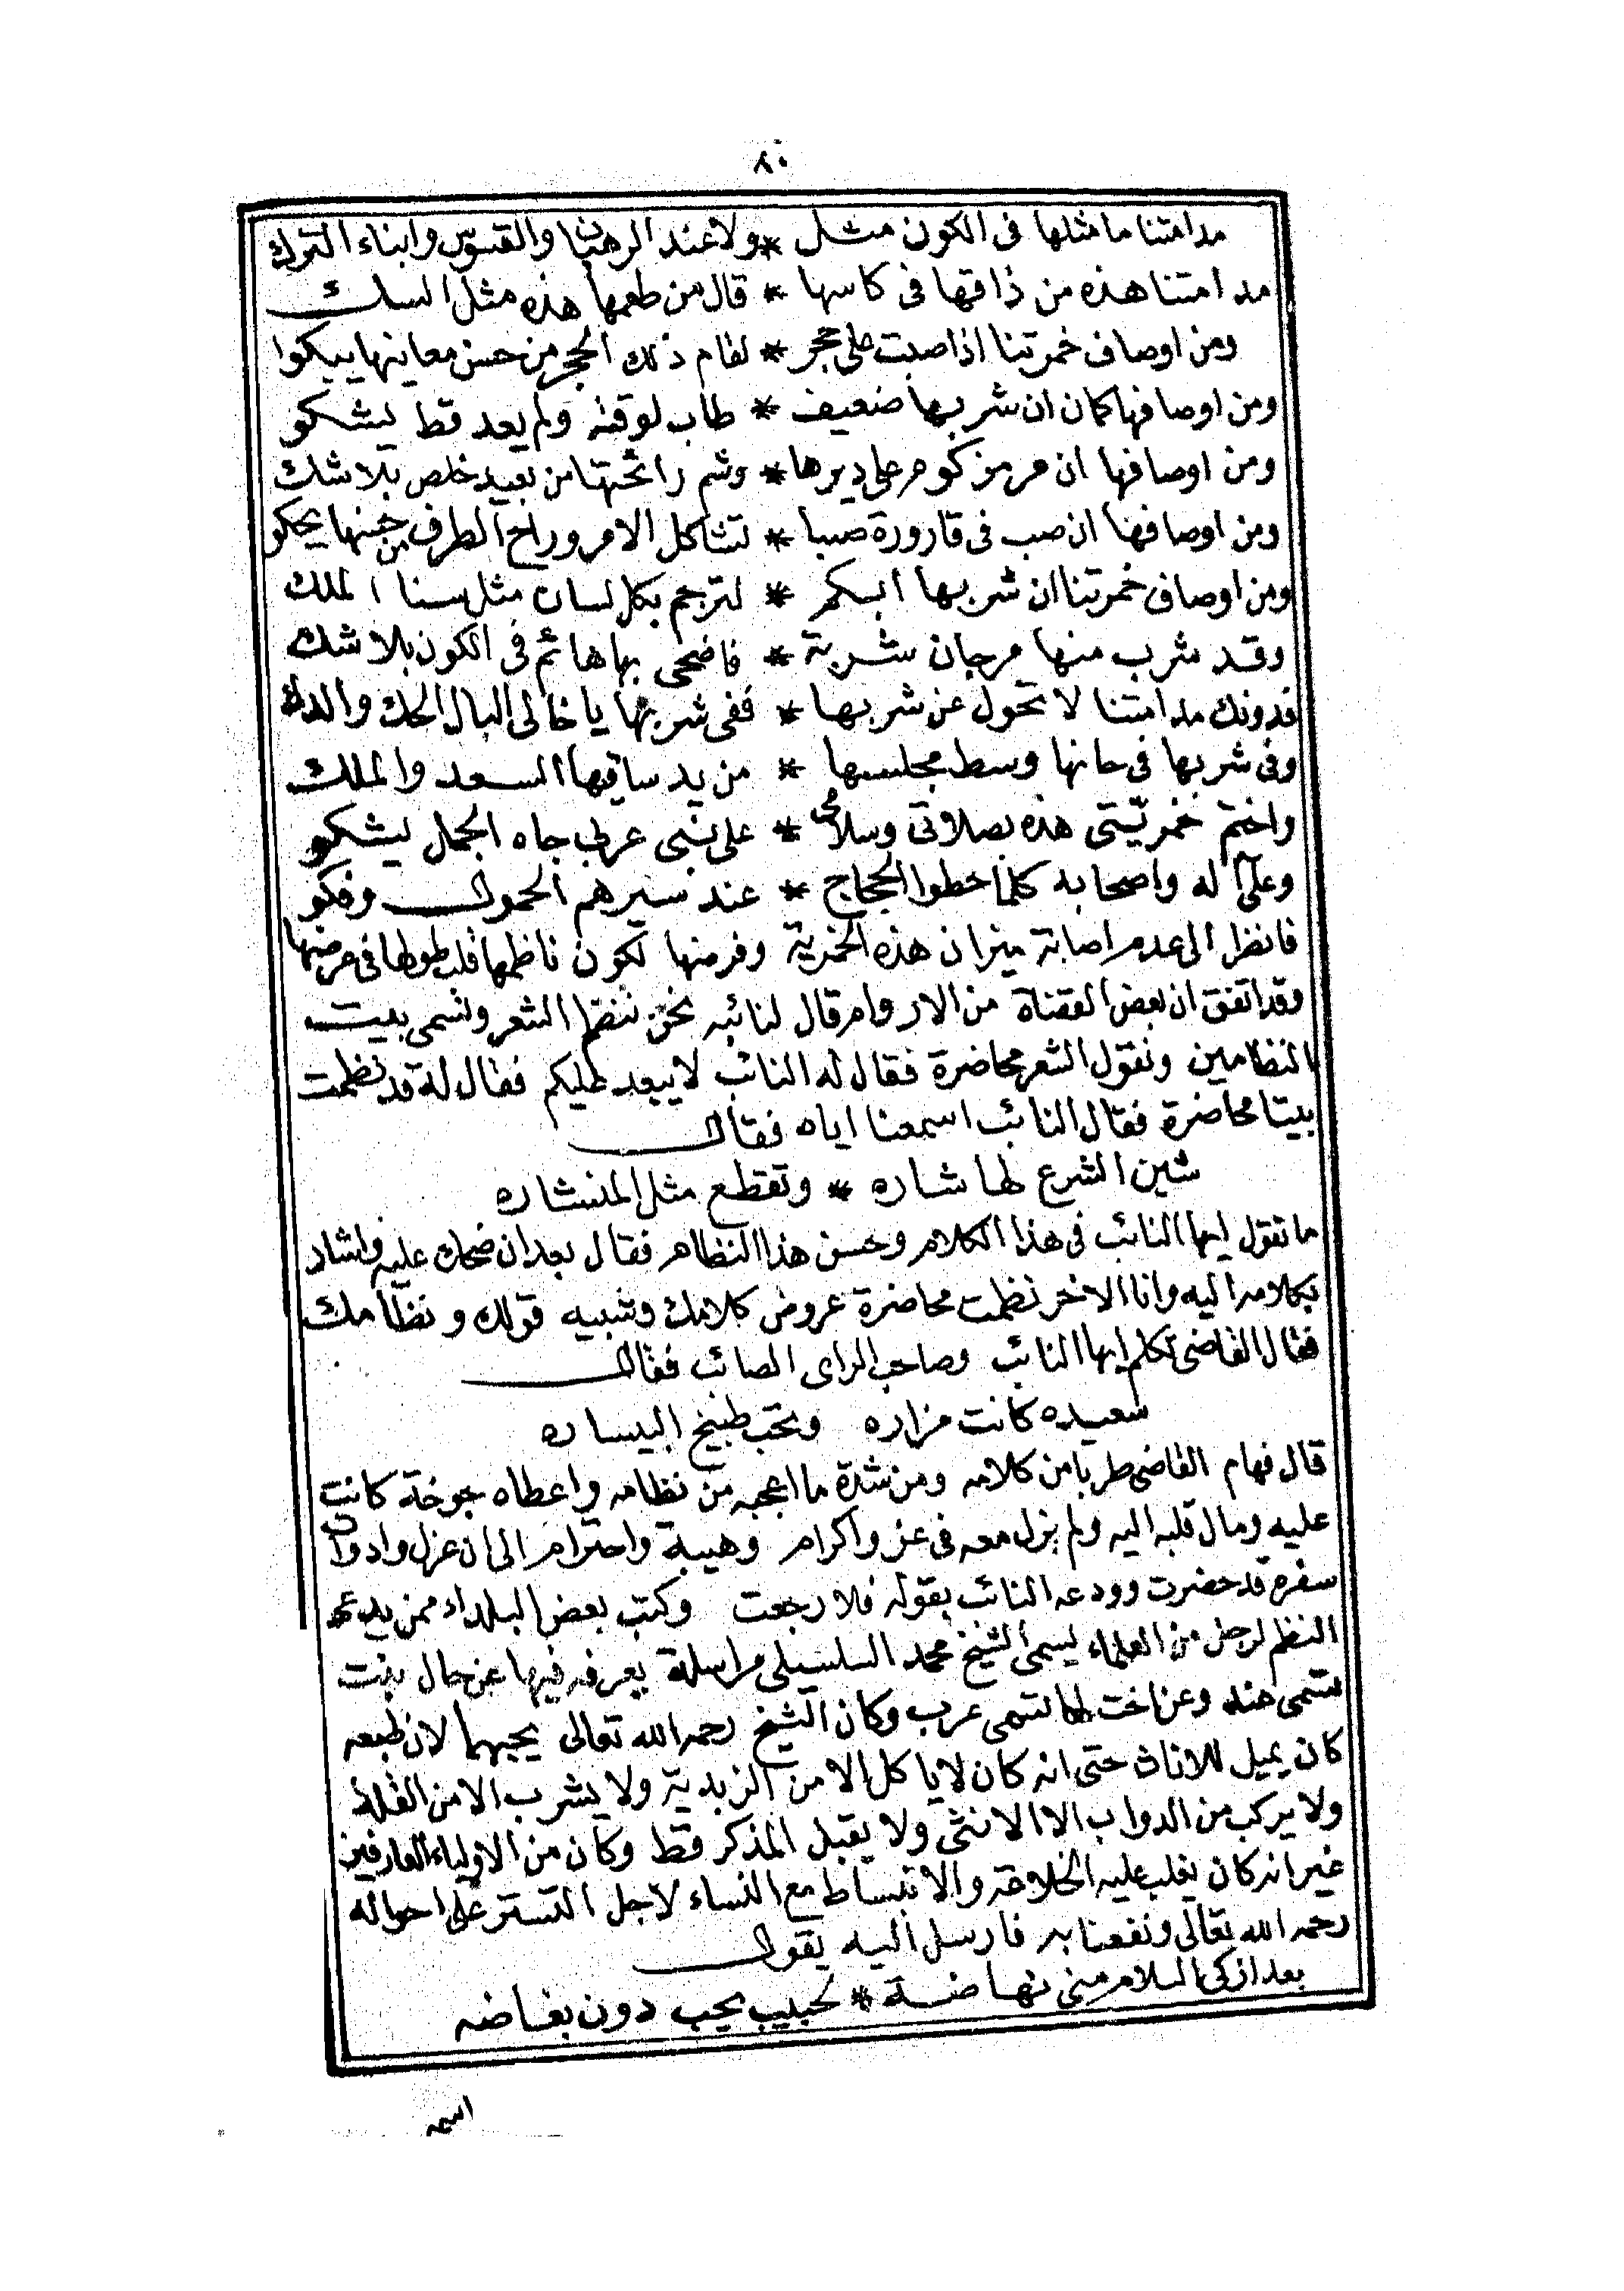 ٨٠
مدامتنا ما مثلها فى الكون مثل * ولا عند الرهبان والقسوس وابناء الترك
مدامتنا هذه من ذاقها فى كاسها * قال من طعمها هذه مثل السك
ومن اوصاف خمرتنا اذا صبت على حجر * لقام ذلك الحجر من حسن معاينها يبكوا
ومن اوصافها كان ان شربها ضعيف * طاب لوقته ولم يعد قط يشكو
ومن اوصافها ان مر مزكوم على ديرها * وشم رائحتها من بعيد خلص بلا شك
ومن اوصافها ان صب فى قارورة صبيا * تشاكل الامر وراح الطرف من يحكو
ومن اوصاف خمرتنا ان شربها ابكم * لترجم بكل لسان مثل لسنا الملك
وقد شرب منها مرجان شربة * فاضحى بها هائم فى الكون بلا شك
فدونك مدامتنا لا تحول عن شربها * ففى شربها يا خالى البال الحك والدك
وفى شربها فى حانها وسط مجلسها * من يد ساقيها السعد والملك
واختم خمريتى هذه بصلاتى وسلامى * على نبى عربى جاه الجمل يشكو
وعلى اله واصحابه كلما خطوا الحجاج * عند سيرهم الحمول وفكو
فانظر الى عدم اصابة ميزان هذه الخمرية وفرضها لكون ناظمها فى عرضها
وقد اتفق ان بعض القضاة من الاروام قال لنائبه نحن ننظم الشعر ونسمى بيت
النظامين ونقول الشعر محاضرة فقال له النائب لا يبعد عليكم فقال له قد نظمت
بيتا محاضرة فقال النائب اسمعنا اياه فقال
شين الشرع لها شاره * وتقطع مثل المنشاره
ما تقول ايها النائب فى هذا الكلام وحسن هذا النظام فقال بعد ان ضحك عليه واشار
بكلامه اليه وانا الاخر نظمت محاضرة عروض كلامك وشبيه قولك ونظامك
فقال القاضى تكلم ايها النائب وصاحب الراى الصائب فقال
سعيده كانت مزاره وتحب طبيخ البيساره
قال فهام القاضى طربا من كلامه ومن شدة ما اعجبه من نظامه واعطاه جوخة كانت
عليه ومال قلبه اليه ولم يزل معه فى عز واكرام وهيبة واحترام الى ان عزل واوان
سفره قد حضرت وودعه النائب بقوله فلا رجعت وكتب بعض البلداء ممن يدعى
النظم لرجل من العلماء يسمى الشيخ محمد السلسيلى مراسلة يعرفه فيها عن حال بنت
تسمى هند وعن اخت لها تسمى عرب وكان الشيخ رحمه الله تعالى يحبهما لان طبعه
كان يميل للاناث حتى انه كان لا ياكل الا من الزبدية ولا يشرب الا من القلة
ولا يركب من الدواب الا الانثى ولا يقبل المذكر قط وكان من الاولياء العارفين
غير انه كان يغلب عليه الخلاعة والانبساط مع النساء لاجل التستر على احواله
رحمه الله تعالى ونفعنا به فارسل اليه يقول
بعد ازكى السلام منى نهاضة * لحبيب يحب دون بغاضه
اسمه